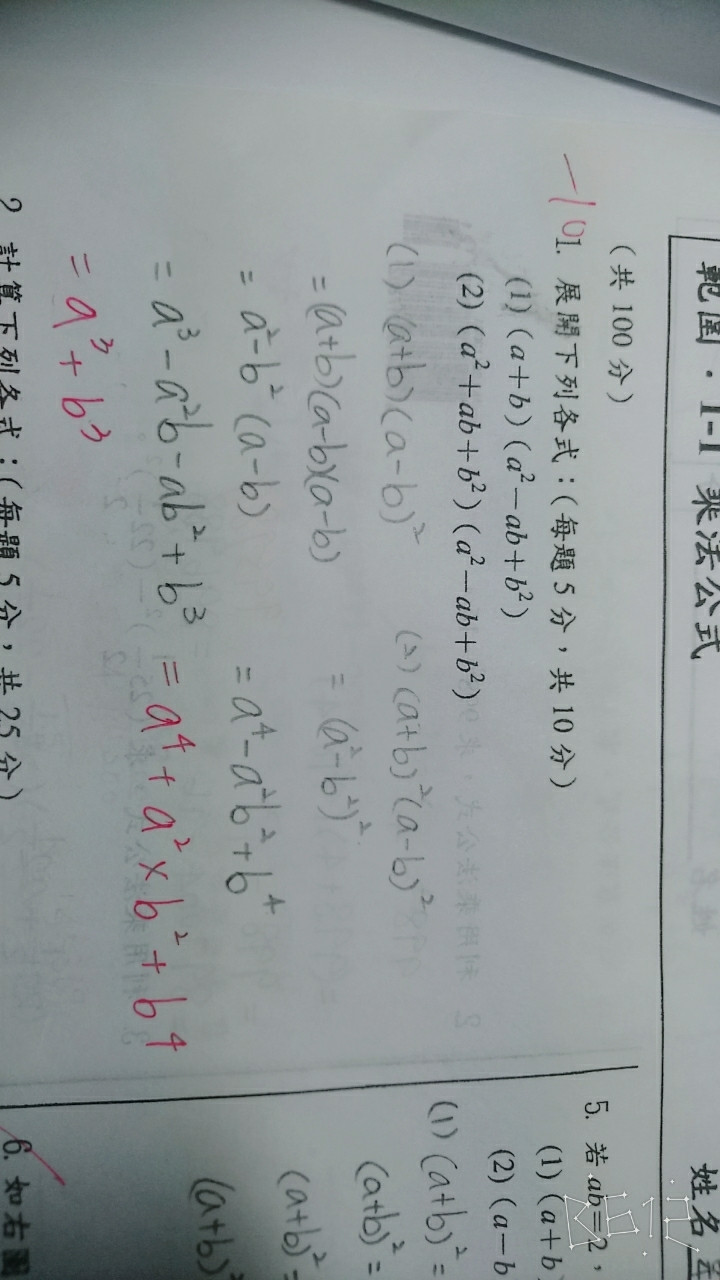 範圍．1-1 乘法公式
姓名
（共 100 分）
-10
1. 展開下列各式：（每題 5 分，共 10 分）
(1) (a+b)(a²−ab+b²)
(2) (a²+ab+b²)(a²−ab+b²)
(1) (a+b)(a-b)²
= (a+b)(a-b)(a-b)
= a²-b² (a-b)
= a³ - a²b - ab² + b³
= a³ + b³
(2) (a+b)²(a-b)²
= (a²-b²)²
= a⁴ - a²b² + b⁴
= a⁴ + a² × b² + b⁴
2 計算下列各式：（每題 5 分，共 25 分）
5. 若 ab=2，
(1) (a+b
(2) (a−b
(1) (a+b)² =
(a+b)² =
(a+b)² =
(a+b)²
6. 如右圖